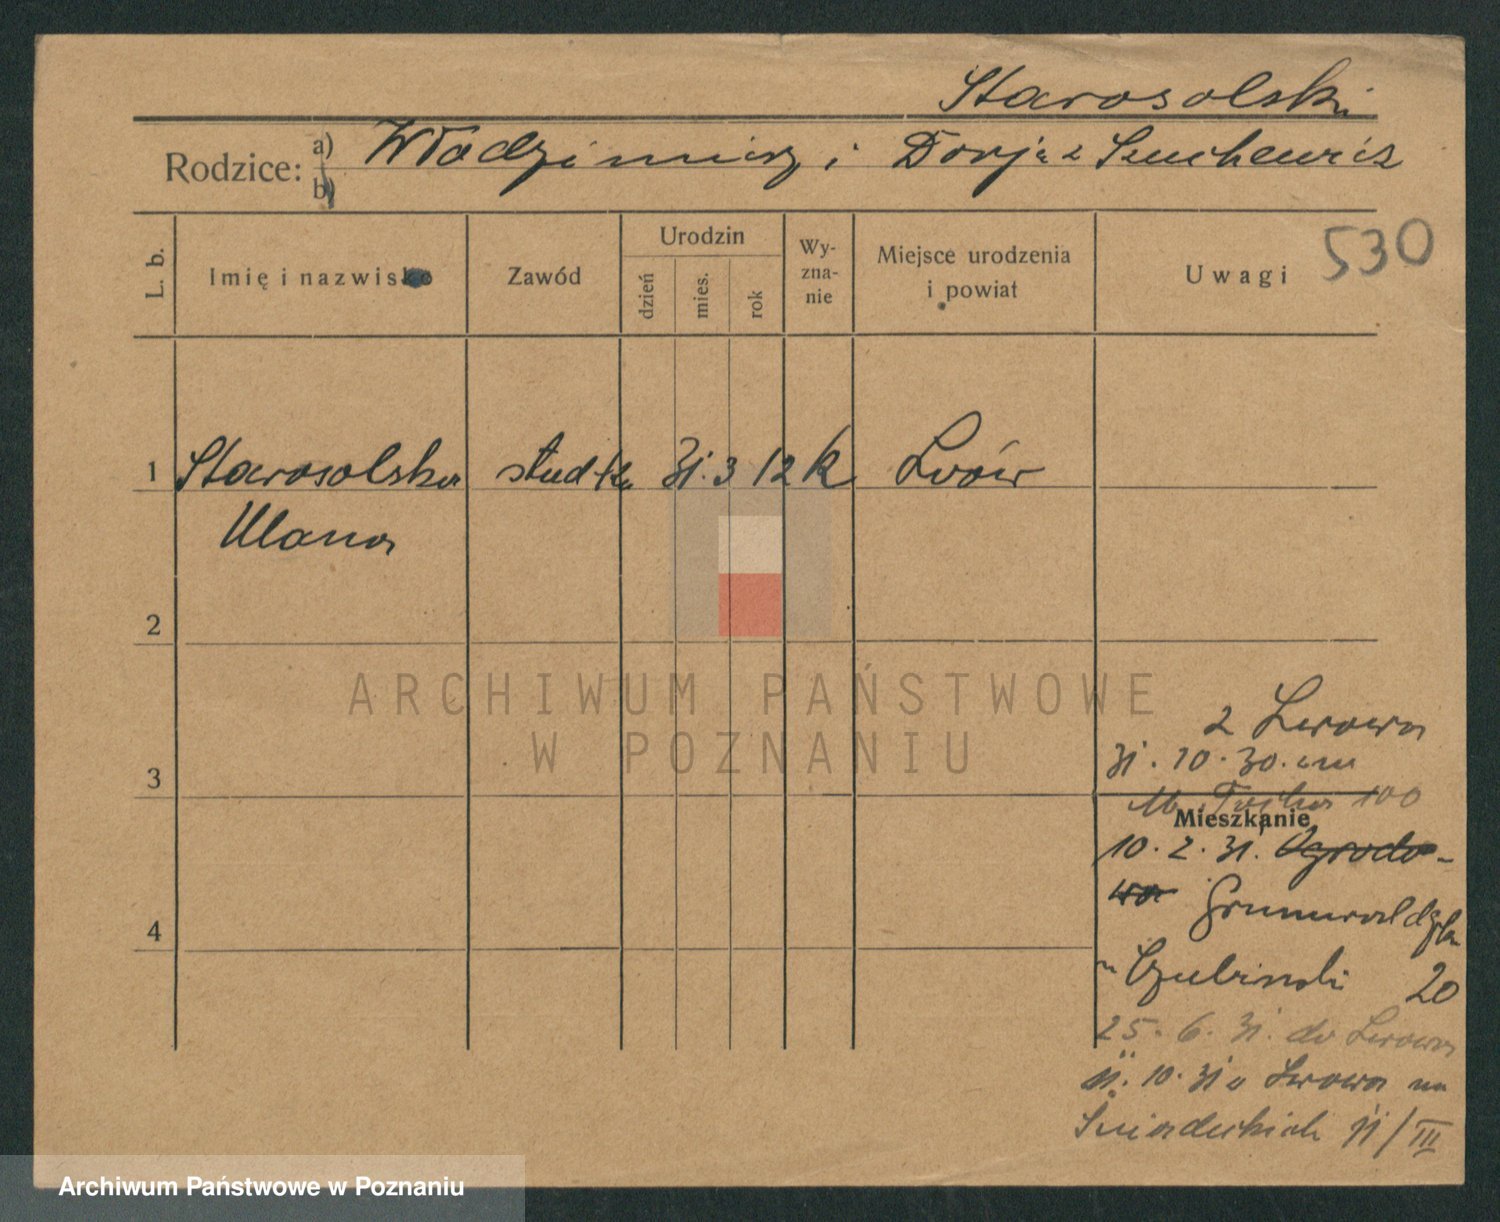 Starosolski
Rodzice: a) Włodzimierz i Dorja z Szuchewicz
b)
530
L. b.
Imię i nazwisko
Zawód
Urodzin
dzień
mies.
rok
Wy-
zna-
nie
Miejsce urodzenia
i powiat
Uwagi
1 Starosolska stud-tka 31. 3 12 k Lwów
Ulana
2
3
4
z Lwowa
31. 10. 30. na
100
Mieszkanie
10. 2. 31. Ogrodo-
wa Grunwaldzka
Czubinski 20
25. 6. 31. do Lwowa
11. 10. 31 z Lwowa na
Śniadeckich 11/III
ARCHIWUM PAŃSTWOWE
W POZNANIU
Archiwum Państwowe w Poznaniu